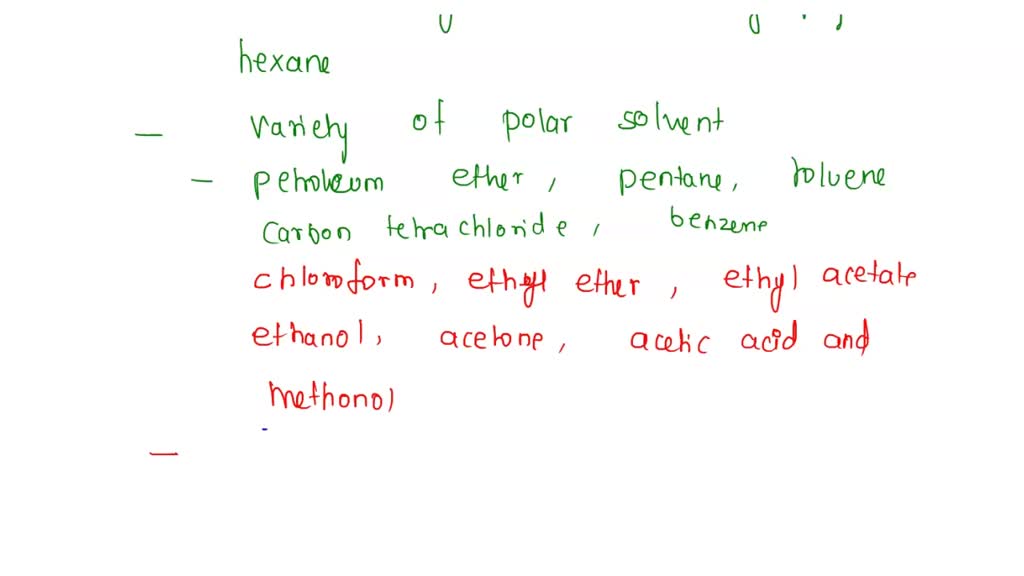 hexane
— Variety of polar solvent
— petroleum ether, pentane, toluene
carbon tetrachloride, benzene
chloroform, ethyl ether, ethyl acetate
ethanol, acetone, acetic acid and
methonol
—